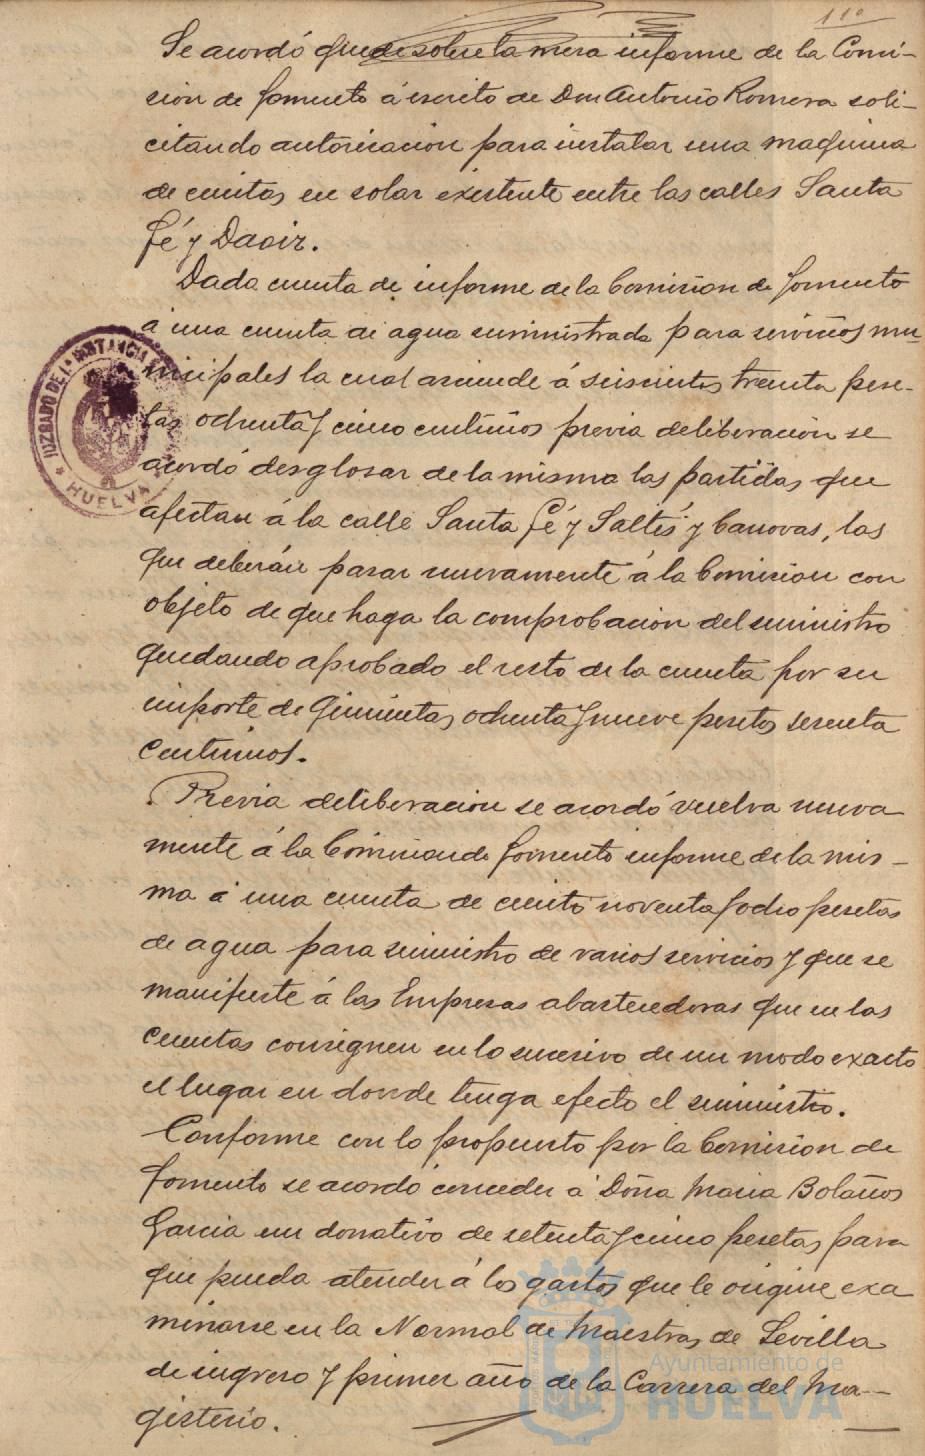 110
Se acordó quede sobre la mesa informe de la Comi-
sion de fomento á escrito de Don Antonio Romera soli-
citando autorizacion para instalar una maquina
de cintas en solar existente entre las calles Santa
Fé y Daoiz.
Dada cuenta de informe de la Comision de fomento
á una cuenta de agua suministrada para servicios mu-
nicipales la cual asciende á seiscientas treinta pese-
tas ochenta y cinco centimos previa deliberacion se
acordó desglosar de la misma las partidas que
afectan á la calle Santa Fé y Saltés y Canovas, las
que deberán pasar nuevamente á la Comision con
objeto de que haga la comprobacion del suministro
quedando aprobado el resto de la cuenta por su
importe de quinientas ochenta y nueve pesetas sesenta
centimos.
Previa deliberacion se acordó vuelva nueva
mente á la Comision de fomento informe de la mis-
ma á una cuenta de ciento noventa y ocho pesetas
de agua para suministro de varios servicios y que se
manifieste á las Empresas abastecedoras que en las
cuentas consignen en lo sucesivo de un modo exacto
el lugar en donde tenga efecto el suministro.
Conforme con lo propuesto por la Comision de
fomento se acordó conceder á Doña Maria Bolaños
Garcia un donativo de setenta y cinco pesetas para
que pueda atender á los gastos que le origine exa
minarse en la Normal de Maestras de Sevilla
de ingreso y primer año de la Carrera del Ma-
gisterio.
JUZGADO DE 1ª INSTANCIA
HUELVA
Ayuntamiento de
HUELVA